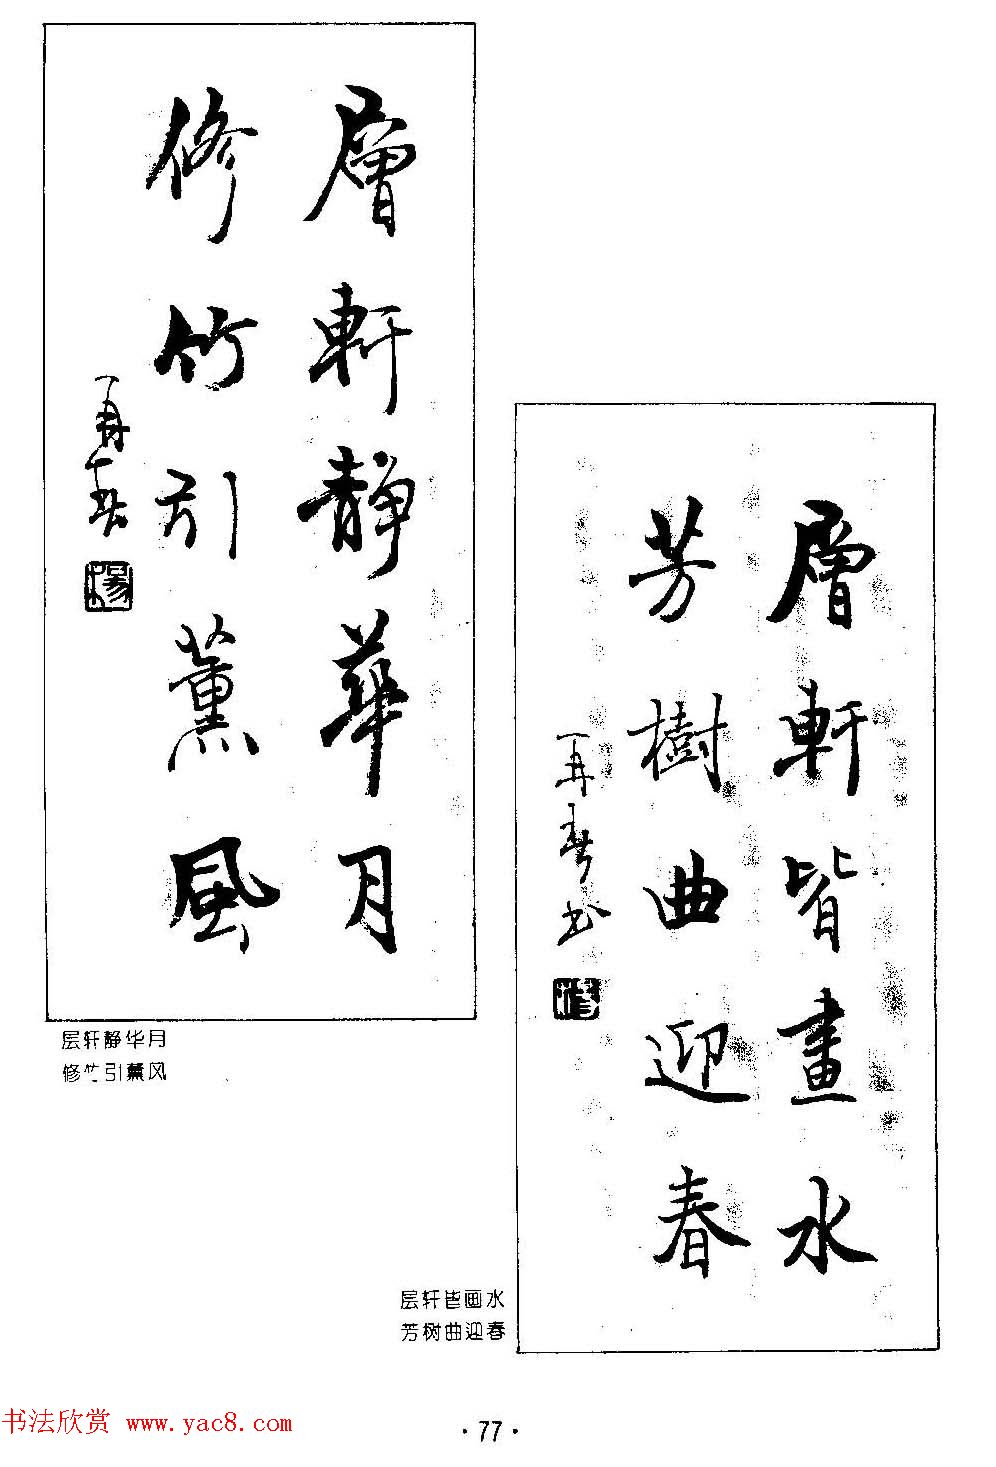 層軒靜華月
修竹引薰風
再春
楊
层轩静华月
修竹引薰风
層軒皆畫水
芳樹曲迎春
再春書
层轩皆画水
芳树曲迎春
书法欣赏 www.yac8.com
· 77 ·